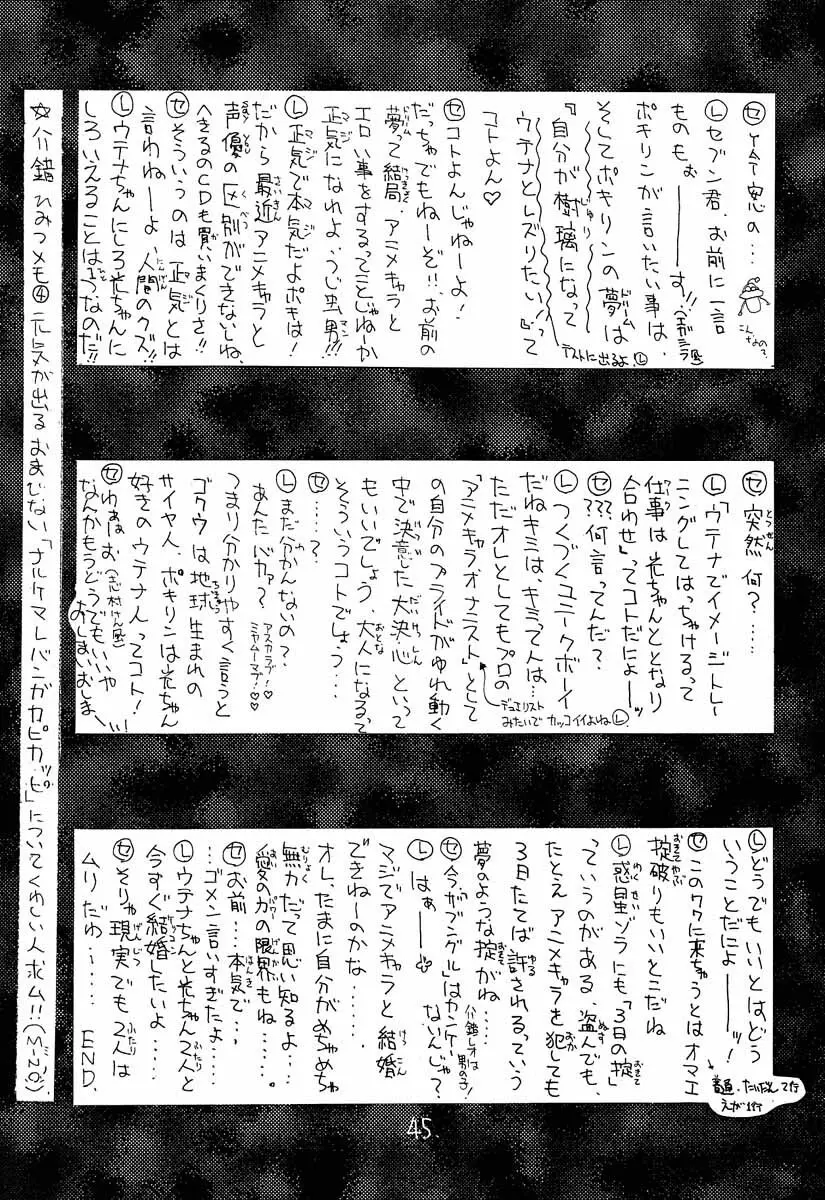 セ 今窓の…
こんなよの?
レ セブン君、お前に一言
ものもぉーーす!!
ポキリンが言いたい事は、
そしてポキリンの夢は
『自分が樹璃になって
ウテナとレズりたい!』って
テストに出るよ。レ
コトよん♡
セ コトよんじゃねーよ!
だっちゃでもねーぞ!!お前の
夢って結局、アニメキャラと
エロい事をするってことじゃねーか
正気になれよ、うじ虫男!!!
レ 正気で本気だよポキは!
だから最近アニメキャラと
声優の区別ができないしね、
へきるのCDも買いまくりさ!!
セ そういうのは正気とは
言わねーよ、人間のクズ!!
レ ウテナちゃんにしろ光ちゃんに
しろいえることは1つなのだ!!
セ 突然何?……
レ 「ウテナでイメージトレー
ニングしてはっちゃけるって
仕事は光ちゃんととなり
合わせ」ってコトだによーーッ
セ ???何言ってんだ?
レ つくづくユニークボーイ
だねキミは、キミって人は…
ただオレとしてもプロの
「アニメキャラオナニスト」として
デュエリスト
みたいでカッコイイよねレ
の自分のプライドがゆれ動く
中で決意した大決心といって
もいいでしょう、大人になるって
そういうコトでしょう…
セ ……?
レ まだ分かんないの?
あんたバカァ?
アスカラブ!♡
ミヤムーマブ!♡♡
つまり分かりやすく言うと
ゴクウは地球生まれの
サイヤ人、ポキリンは光ちゃん
好きのウテナ人ってコト!
セ わぁはぉ(志村けん風)
なんかもうどうでもいいや
おしまいおしまい
レ どうでもいいとはどう
いうことだによーーッ!
セ このワクに来ちゃうとはオマエ
普通、たいだん2行
えが1行
掟破りもいいとこだね
レ 惑星ゾラにも「3日の掟」
っていうのがある、盗んでも、
たとえアニメキャラを犯しても
3日たてば許されるっていう
夢のような掟がね…
セ 今「ザブングル」はカンケー
ないんじゃ?
レ はぁーー
介錯レオは
男の子!
マジでアニメキャラと結婚
できねーのかな……
オレ、たまに自分がめちゃめちゃ
無力だって思い知るよ…
愛の力の限界もね……。
セ お前…本気で…、
…ゴメン言いすぎたよ…
レ ウテナちゃんと光ちゃん2人と
今すぐ結婚したいよ…
セ そりゃ現実でも2人は
ムリだゆ……
END.
☆介錯ひみつメモ④元気が出るおまじない「ナルケマレバンガカピカッピ」についてくわしい人求ム!!
45.